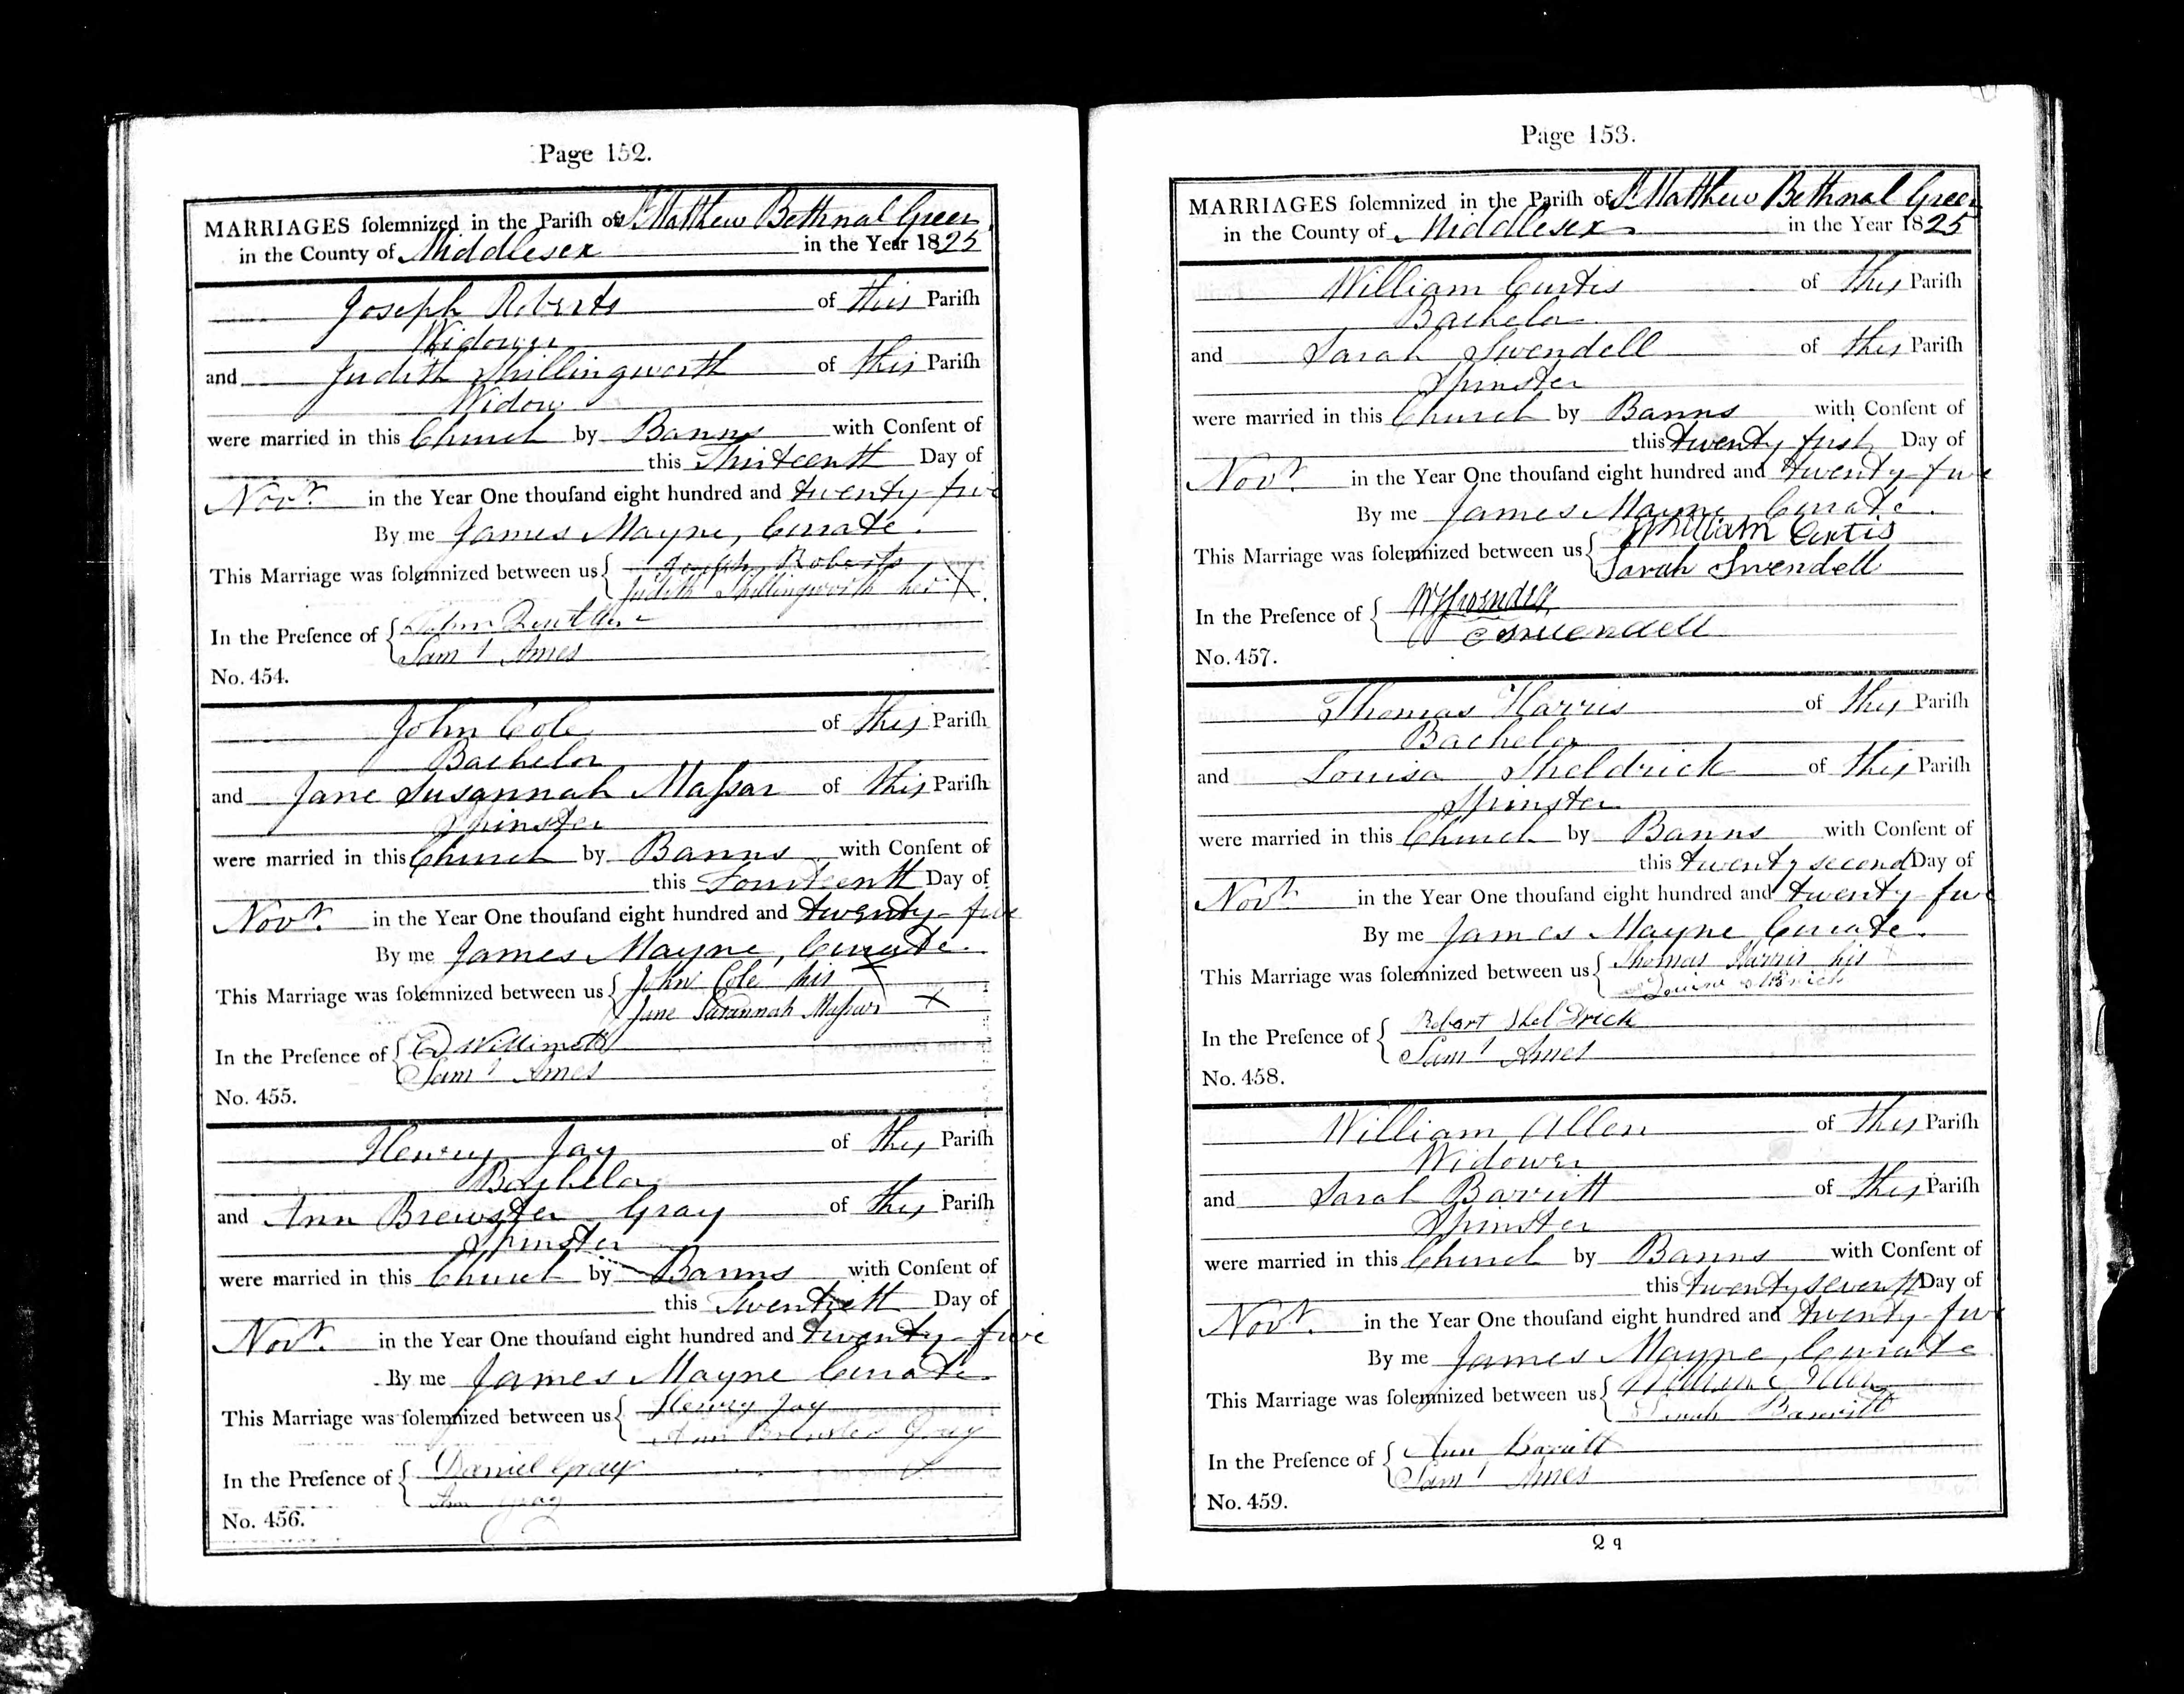 Page 152.
MARRIAGES solemnized in the Parish of St. Matthew Bethnal Green
in the County of Middlesex in the Year 1825
Joseph Roberts of this Parish
Widower
and Judith Shillingworth of this Parish
Widow
were married in this Church by Banns with Consent of
this Thirteenth Day of
Novr. in the Year One thousand eight hundred and twenty-five
By me James Mayne, Curate.
This Marriage was solemnized between us { Joseph Roberts
Judith Shillingworth her X
In the Presence of {
Saml Ames
No. 454.
John Cole of this Parish
Bachelor
and Jane Susannah Massar of this Parish
Spinster
were married in this Church by Banns with Consent of
this Fourteenth Day of
Novr. in the Year One thousand eight hundred and twenty-five
By me James Mayne, Curate.
This Marriage was solemnized between us { John Cole his X
Jane Susannah Massar X
In the Presence of { Willimott
Saml Ames
No. 455.
Henry Jay of this Parish
Bachelor
and Ann Brewster Gray of this Parish
Spinster
were married in this Church by Banns with Consent of
this Twentieth Day of
Novr. in the Year One thousand eight hundred and twenty-five
By me James Mayne Curate.
This Marriage was solemnized between us { Henry Jay
Ann Brewster Gray
In the Presence of { Daniel Gray
Ann Gray
No. 456.
Page 153.
MARRIAGES solemnized in the Parish of St. Matthew Bethnal Green
in the County of Middlesex in the Year 1825
William Curtis of this Parish
Bachelor
and Sarah Swendell of this Parish
Spinster
were married in this Church by Banns with Consent of
this twenty first Day of
Novr. in the Year One thousand eight hundred and twenty-five
By me James Mayne Curate.
This Marriage was solemnized between us { William Curtis
Sarah Swendell
In the Presence of { W Swendell
C Swendell
No. 457.
Thomas Harris of this Parish
Bachelor
and Louisa Sheldrick of this Parish
Spinster
were married in this Church by Banns with Consent of
this twenty second Day of
Novr. in the Year One thousand eight hundred and twenty-five
By me James Mayne Curate.
This Marriage was solemnized between us { Thomas Harris his X
Louisa
In the Presence of { Robart ShelDrick
Saml Ames
No. 458.
William Allen of this Parish
Widower
and Sarah Barritt of this Parish
Spinster
were married in this Church by Banns with Consent of
this twenty seventh Day of
Novr. in the Year One thousand eight hundred and twenty-five
By me James Mayne, Curate
This Marriage was solemnized between us { William Allen
Sarah Barritt
In the Presence of { Ann Barritt
Saml Ames
No. 459.
2 q